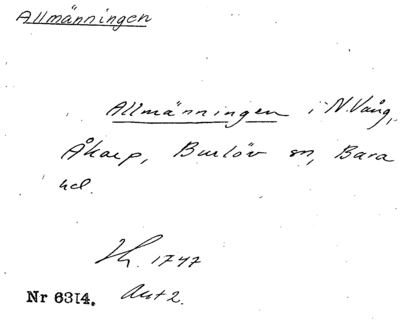 Allmänningen
Allmänningen i N. Vång,
Åkarp, Burlöv sn, Bara
hd.
1747
Nr 6314. Akt 2.